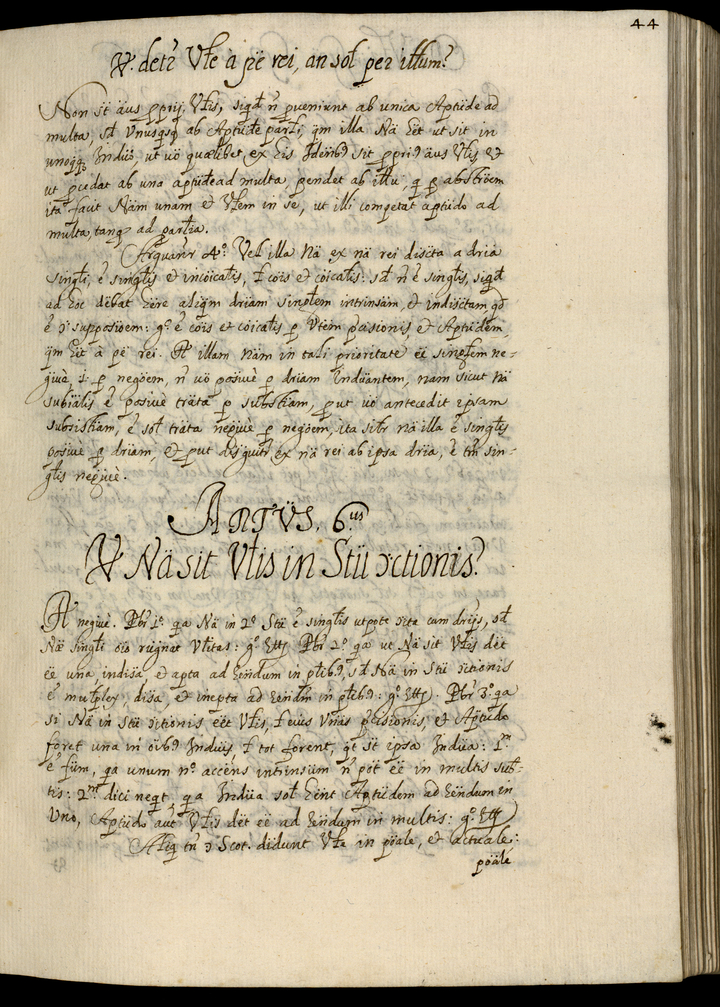 44
V. detr Vłe à pẽ rei, an soł per ittum?
Non st äus pprij Vtis, siqd ñ pveniunt ab unica Aptide ad
multa, sd Vnusqsq ab Aptüte parłi, qm illa Nä Eët ut sit in
unoqq Indüo, ut uö quælibet ex Eis Jdeñb9 sit pprig äus Vtis et
ut pcedat ab una aptüdeadmulta, pendet ab ittu, q p abströem
ita facit Näm unam et Vtem in se, ut illi competat aptüdo ad
multa, tanq ad parłia.
Arguunr 4º. Vel illa Nä ex nä rei discïta a dria
singłi, ē singłis et incöicałis, ł cöis et cöicałis: sd ñ ē singłis, siqd
ad hoc dëbat Eëre aliqm driam singłem intrinsäm, et indiscïtam, qd
ē ɔ supposïoem: gº ē cöis et cöicałis p Vtem pcisionis, et Aptüdem,
qm Eët à pẽ rei. R illam Näm in tali prioritate ëe singłem ne-
güuè, i. p negöem, ñ uö posiuè p driam Indüantem, nam sicut Nä
subiälis ē posiuè träta p subsłiam, put uö antecedit ipsam
subsistïam, ē soł träta negüuè p negöem, ita sibr nä illa ē singłis
posiuè p driam, et put disguitr ex nä rei ab ipsa dria, ē tm sin-
głis negüuè.
ARTVS. 6us
V Nä sit Vtis in Stü ɔctionis?
R negiuè. Pbr 1º. qa Nä in 2º Stü ē singłis utpote ɔcta cum drijs, sd
Nä singłi öio rugnat Vłitas: gº Ett Pbr 2º. qa ut Nä sit Vłis dët
ëe una, indisa, et apta ad Eëndum in płib9, sd Nä in Stü ɔctionis
ē multplex, disa, et inepta ad Eëndm in płib9: gº Ett. Pbr 3º. qa
si Nä in Stü ɔctionis eët Vłis, ł eius Vnis pcisionis, et Aptüdo
foret una in öib9 Indüis, ł tot forent, qt st ipsa Indüa: 1m
ē fsm, qa unum nº accëns intrinsüm ñ pöt ëe in multis sub-
tis: 2m dici neqt, qa Indüa soł Eënt Aptüdem ad Eëndum in
Uno, Aptüdo aut Vłis dët ëe ad Eëndum in multis: gº Ett
Aliq tñ ɔ Scot. didunt Vłe in pöäle, et actuale:
pöäle